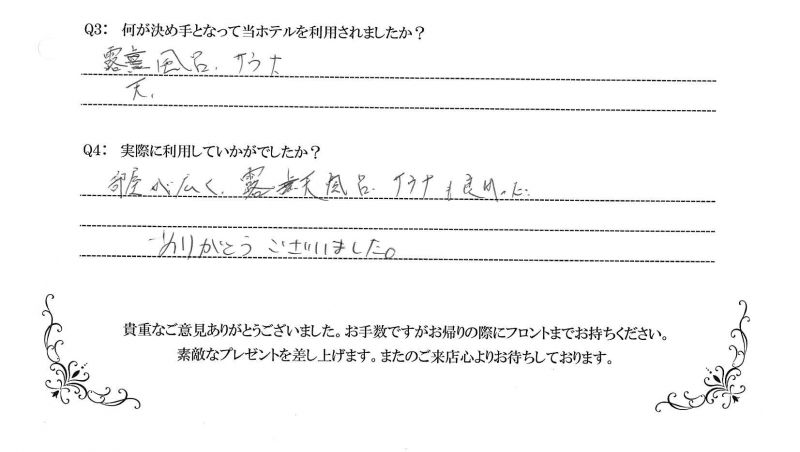 Q3: 何が決め手となって当ホテルを利用されましたか？
露天風呂、サウナ
Q4: 実際に利用していかがでしたか？
部屋が広く、露天風呂、サウナも良かった。
ありがとうございました。
貴重なご意見ありがとうございました。お手数ですがお帰りの際にフロントまでお持ちください。
素敵なプレゼントを差し上げます。またのご来店心よりお待ちしております。